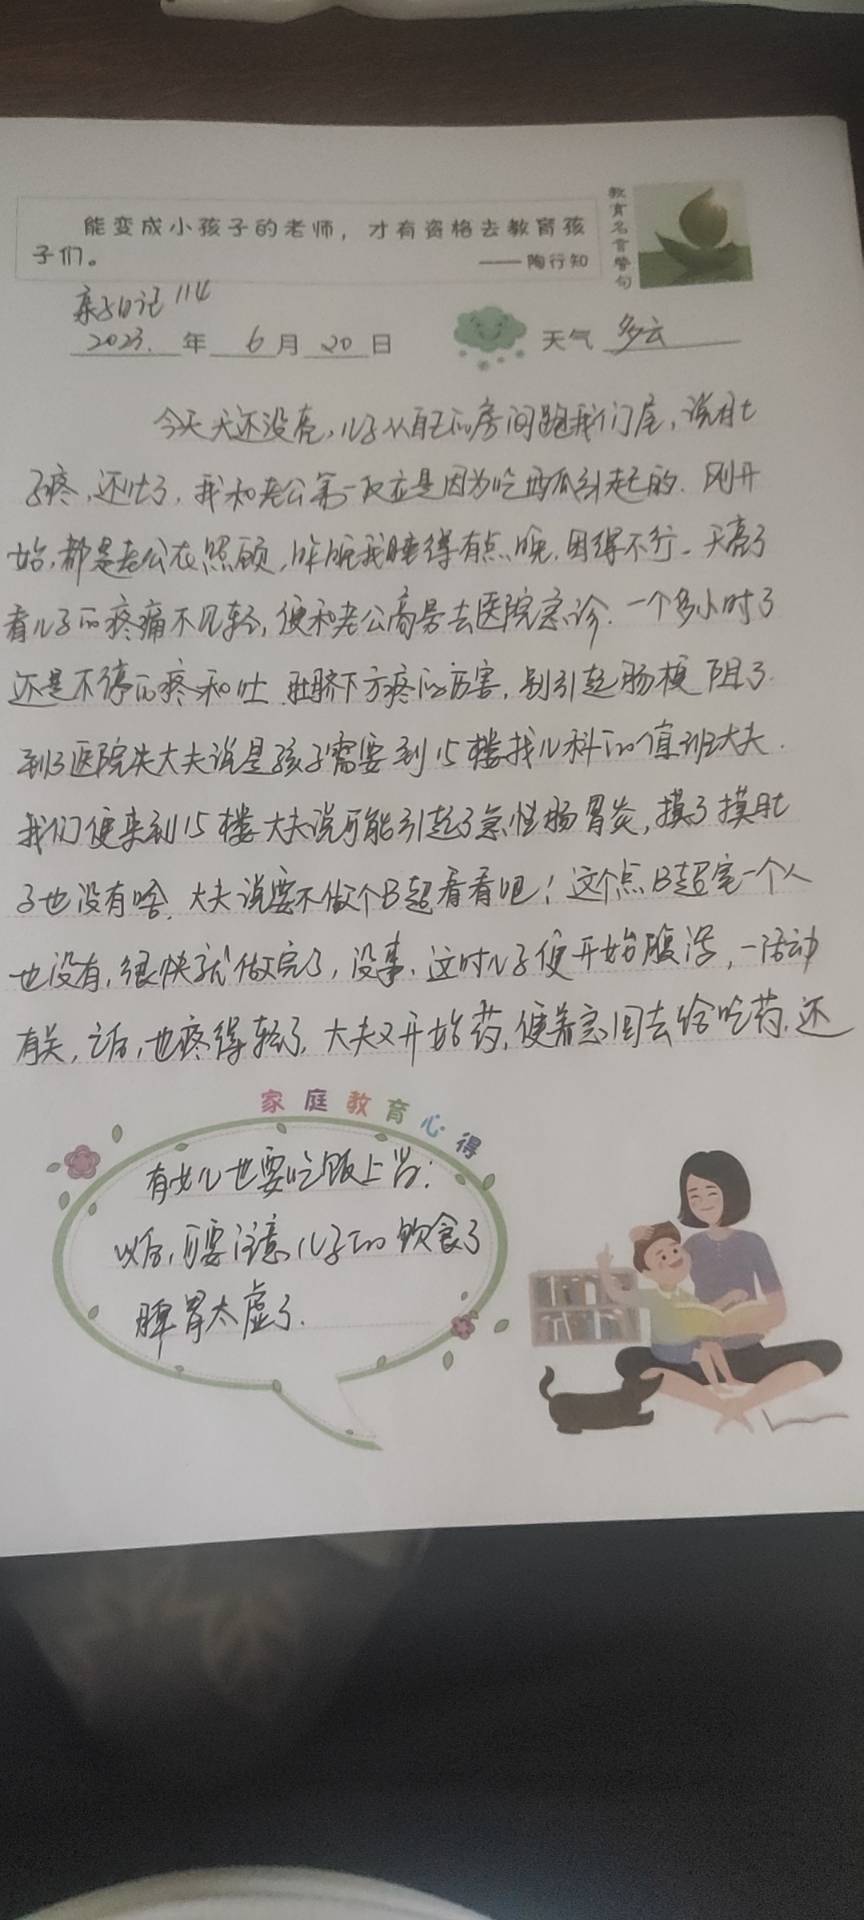 能变成小孩子的老师，才有资格去教育孩
子们。 ——陶行知
教育名言警句
亲子日记 114
2023. 年 6 月 20 日 天气 多云
今天天还没亮，儿子从自己的房间跑我们屋，说肚
子疼，还吐了，我和老公第一反应是因为吃西瓜引起的．刚开
始，都是老公在照顾，昨晚我睡得有点晚，困得不行．天亮了
看儿子的疼痛不见轻，便和老公商量去医院急诊．一个多小时了
还是不停的疼和吐 肚脐下方疼的厉害，别引起肠梗阻了．
到了医院 大夫说是孩子需要到15楼找儿科的值班大夫．
我们便来到15楼 大夫说可能引起了急性肠胃炎，摸了摸肚
子也没有啥．大夫说要不做个B超看看吧！这个点B超室一个人
也没有，很快就做完了，没事．这时儿子便开始腹泻，一活动
有关，之后，也疼得轻了．大夫又开始药，便着急回去给吃药，还
家庭教育心得
有女儿也要吃饭上学；
以后，可要注意儿子的饮食了
脾胃太虚了．